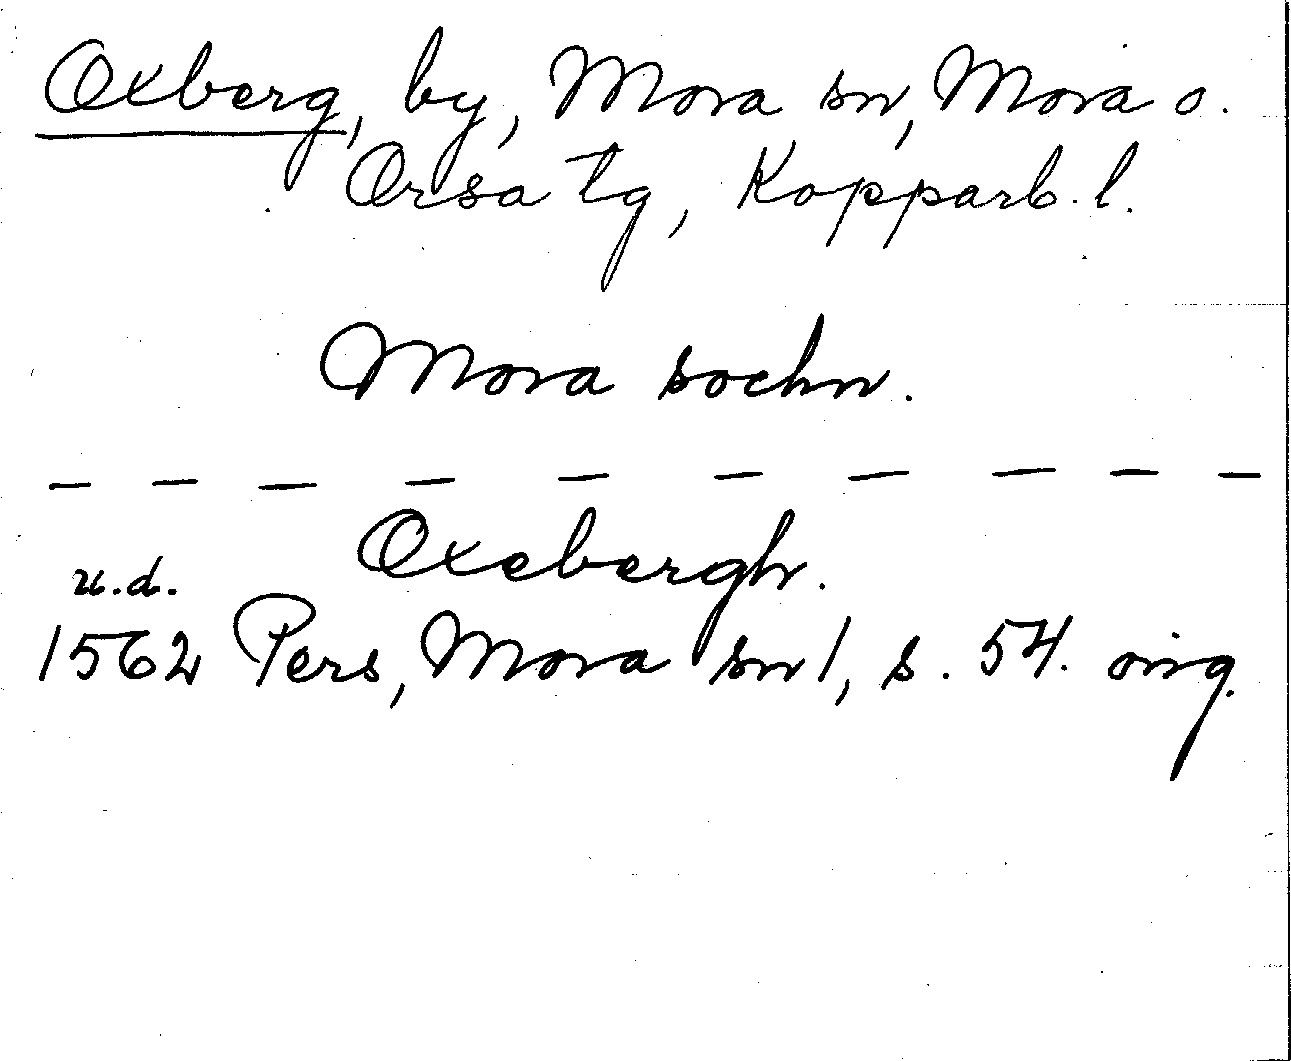 Oxberg, by, Mora sn, Mora o.
Orsa tg, Kopparb. l.
Mora sochn.
— — — — — — — — — —
Oxebergh.
u.d.
1562 Pers, Mora sn 1, s. 54. orig.